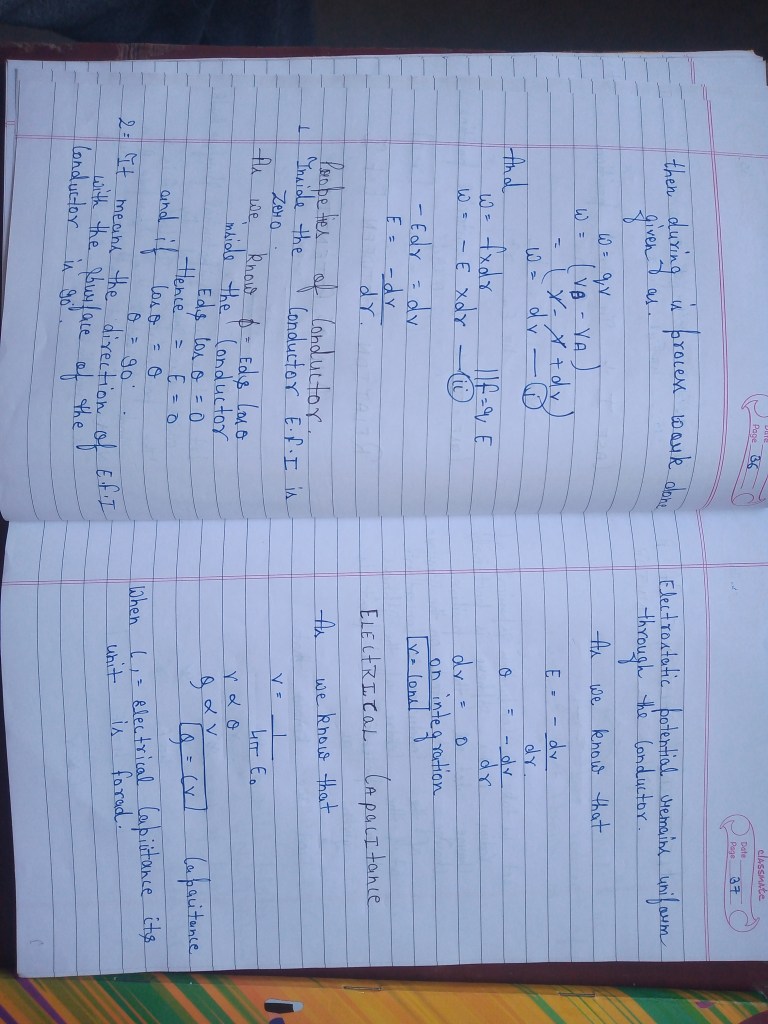 Date
Page 36
then during is process work done
given as.
w = qv
w = (VB - VA)
= (V - V + dv)
w = dv — (i)
And
w = fxdr || f = qE
w = - E x dr — (ii)
- Edr = dv
E = - dv
dr.
Propeties of Conductor.
1 Inside the Conductor E.f.I is
zero.
As we know ϕ = Eds Cosθ
inside the Conductor
Eds Cosθ = 0
Hence = E = 0
and if Cosθ = 0
θ = 90°.
2 = It means the direction of E.f.I
with the Surface of the
Conductor is 90°.
classmate
Date
Page 37
Electrostatic potential remains uniform
through the Conductor.
As we know that
E = - dv
dr.
0 = - dv
dr
dv = 0
on integration
V = Cons
ELECTRICAL CAPACITANCE
As we know that
V = 1
4π ε0
V ∝ Q
Q ∝ V
Q = CV Capacitance
When C, = electrical Capacitance its
unit is farad.